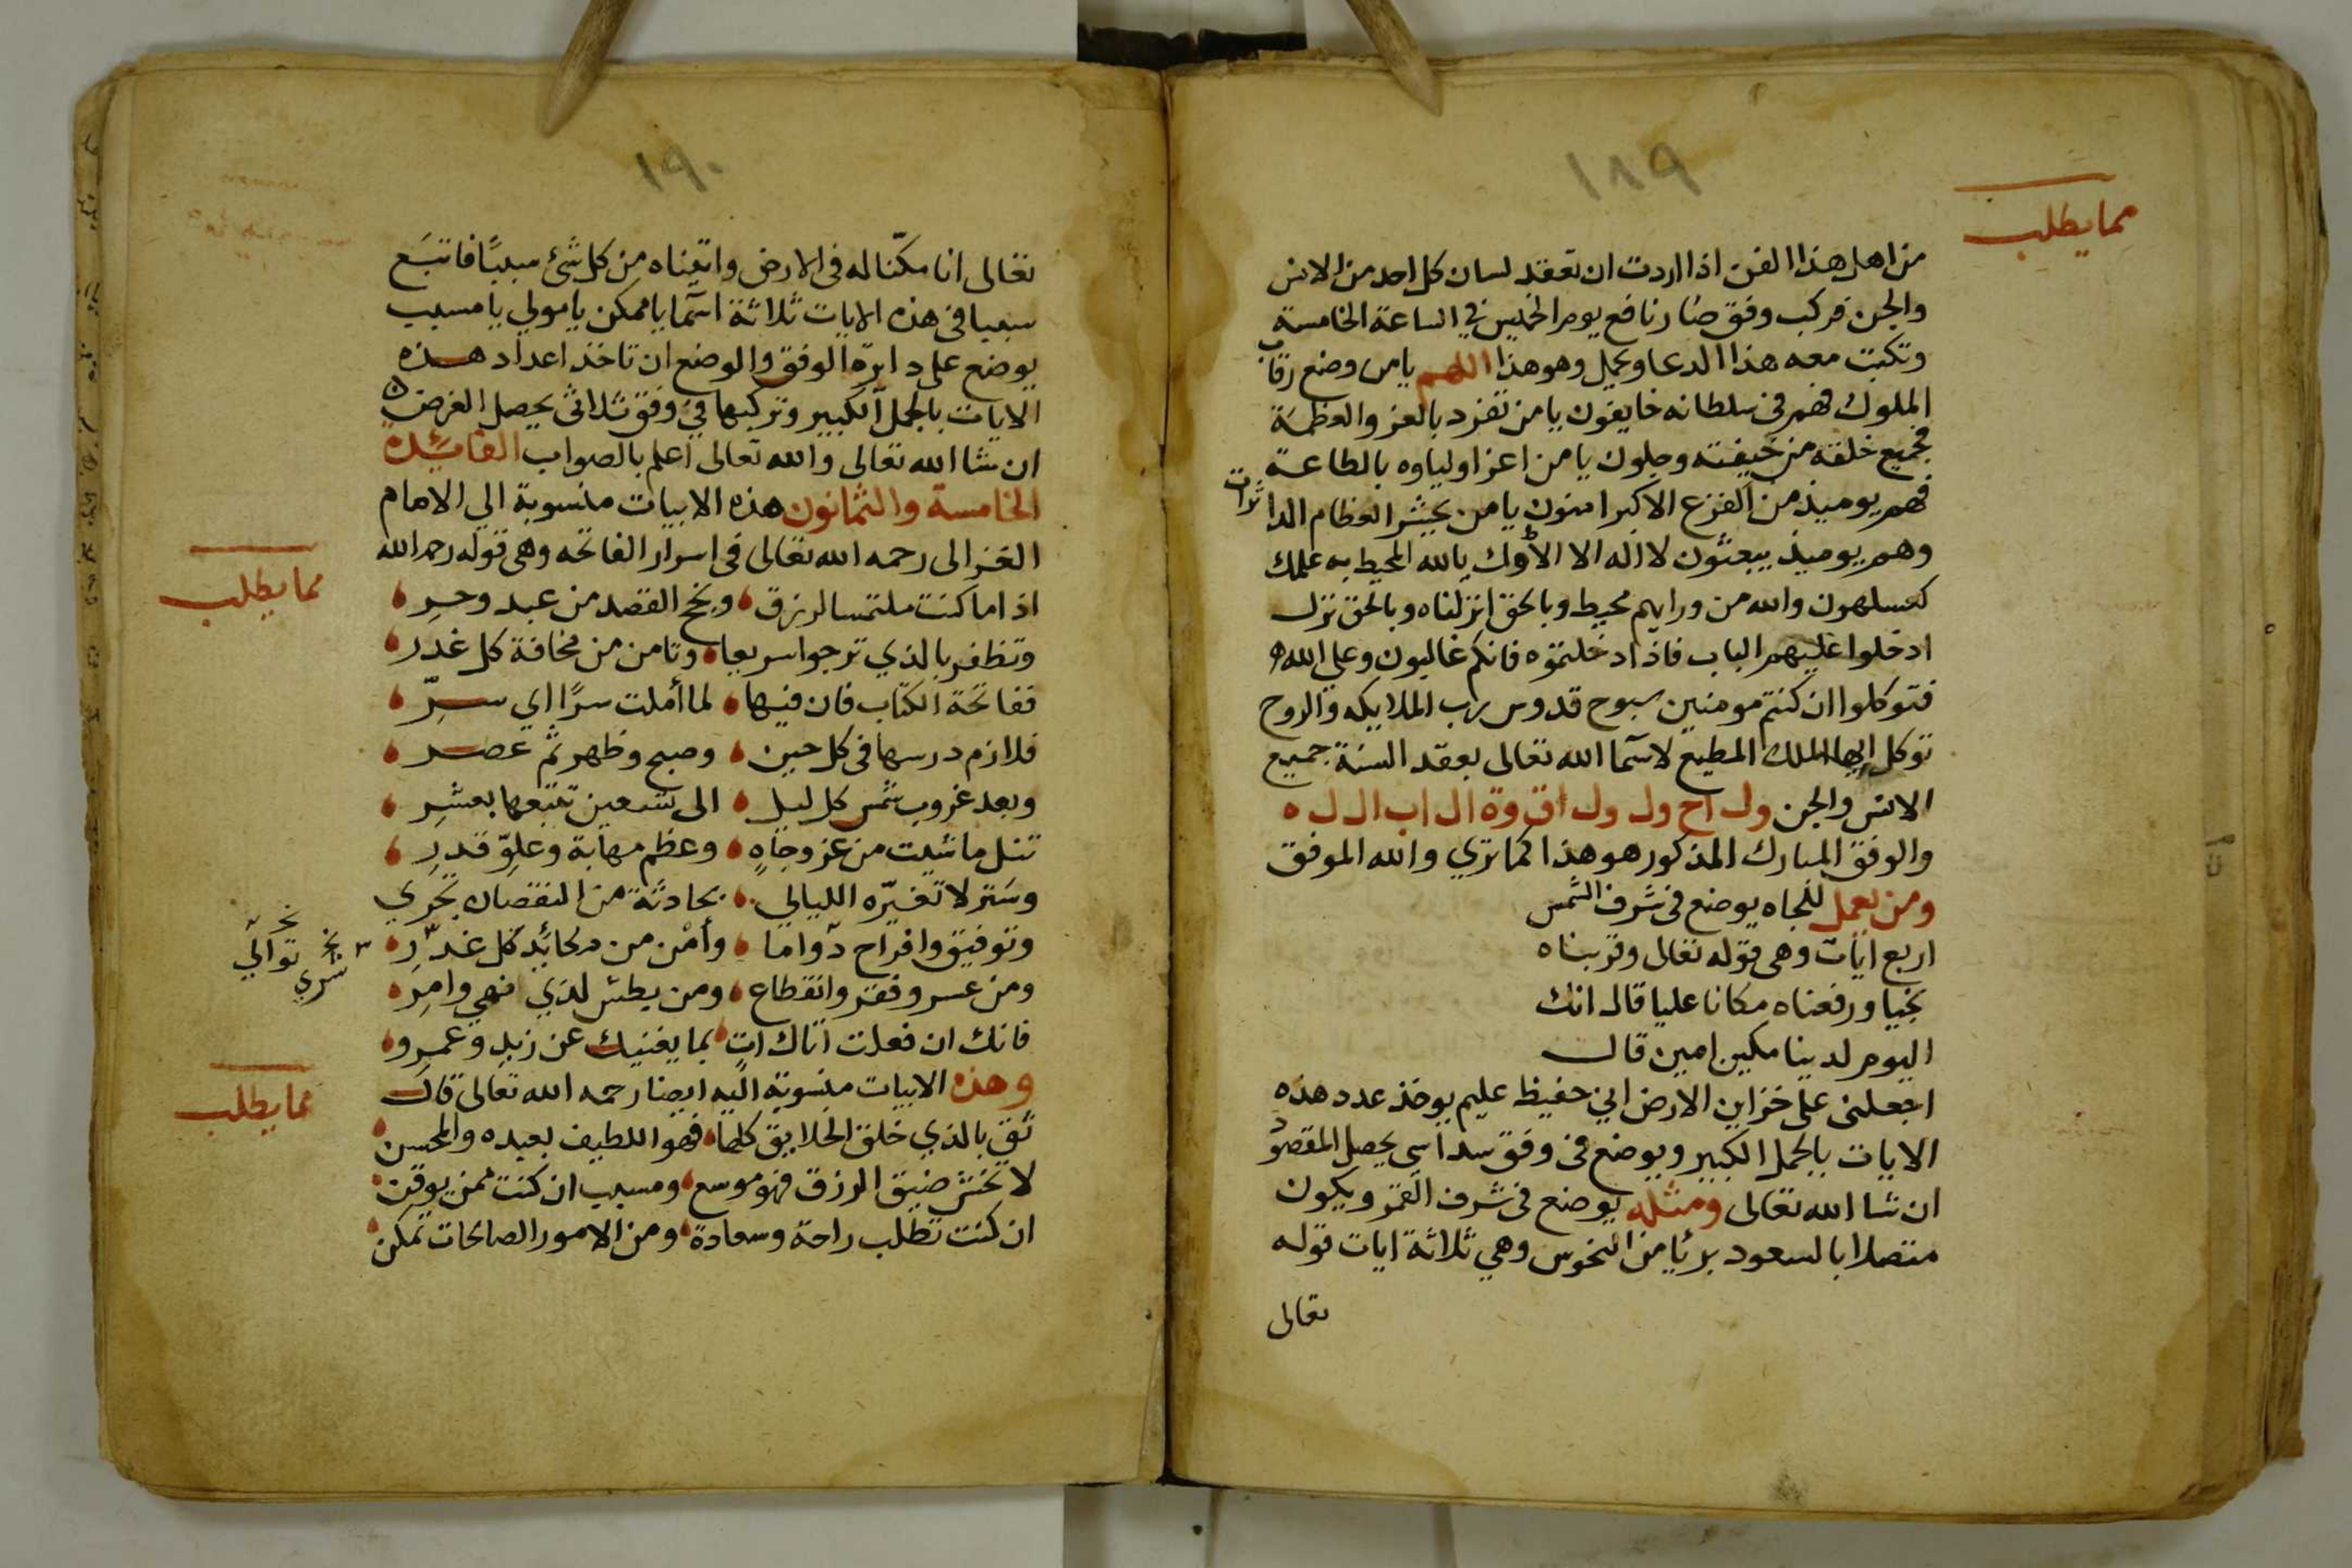 ١٨٩
مما يطلب
من اهل هذا الفن اذا اردت ان تعقد لسان كل احد من الانس
والجن فركب وفق ضار نافع يوم الخميس في الساعة الخامسة
وتكتب معه هذا الدعا ويحمل وهو هذا اللهم يا من وضع رقاب
الملوك فهم في سلطانه خايفون يا من تفرد بالعز والعظمة
فجميع خلقه من خيفته وجلون يا من اعز اولياوه بالطاعة
فهم يوميذ من الفزع الاكبر امنون يا من يحيي العظام الداثرات
وهم يوميذ يبعثون لا اله الا الاوك يالله المحيط به علمك
كعسلهون والله من ورايهم محيط وبالحق انزلناه وبالحق نزل
ادخلوا عليهم الباب فاذا دخلتموه فانكم غالبون وعلى الله
فتوكلوا ان كنتم مومنين سبوح قدوس رب الملايكه والروح
توكل ايها الملك المطيع لاسما الله تعالى بعقد السنة جميع
الانس والجن ول اح ول ول اق وة ال اب ال ل ه
والوفق المبارك المذكور هو هذا كما تري والله الموفق
ومن يعمل للجاه يوضع فى شرف الشمس
اربع ايات وهى قوله تعالى وقربناه
نجيا ورفعناه مكانا عليا قال انك
اليوم لدينا مكين امين قال
اجعلنى على خزاين الارض اني حفيظ عليم يوخذ عدد هذه
الايات بالجمل الكبير ويوضع فى وفق سداسي يحصل المقصود
ان شا الله تعالى ومثله يوضع فى شرف القمر ويكون
متصلا بالسعود بريا من النحوس وهي ثلاثة ايات قوله
تعالى
١٩٠
تعالى انا مكنّا له فى الارض واتيناه من كل شئ سببًا فاتبَع
سببا فى هذه الايات ثلاثة اسما يا ممكن يا مولي يا مسبب
يوضع على دايرة الوفق والوضع ان تاخذ اعداد هذه
الايات بالجمل الكبير وتركبها في وفق ثلاثى يحصل الغرض
ان شا الله تعالى والله تعالى اعلم بالصواب الفائدة
الخامسة والثمانون هذه الابيات منسوبة الي الامام
الغزالى رحمه الله تعالى فى اسرار الفاتحه وهى قوله رحمه الله
مما يطلب
اذا ما كنت ملتمسا لرزق ونجح القصد من عبد وحرِ
وتظفر بالذي ترجوا سريعا وتامن من مخافة كل غدر
ففاتحة الكتاب فان فيها لما أملت سرًا اي سرّ
فلازم درسها فى كل حين وصبح وظهر ثم عصر
وبعد غروب شمس كل ليل الى تسعين تتبعها بعشرِ
تنل ما شيت من عز وجاهٍ وعظم مهابة وعلوّ قدرِ
وسَتر لا تغيّره الليالي بحادثة من النقصان تجري
وتوفيق وافراح دواما وأمْن من مكائد كل غدرِ
نخ توالي
نخ شري
ومن عسر وفقر وانقطاع ومن يطش لذي نهي وامرِ
فانك ان فعلت اتاك اتٍ بما يغنيك عن زيدٍ وعمرو
مما يطلب
وهذه الابيات منسوبة اليه ايضا رحمه الله تعالى قال
ثق بالذي خلق الخلايق كلها فهو اللطيف بعبده والمحسن
لا تخش ضيق الرزق فهو موسع ومسبب ان كنت ممن يوقن
ان كنت تطلب راحة وسعادة ومن الامور الصالحات تمكن